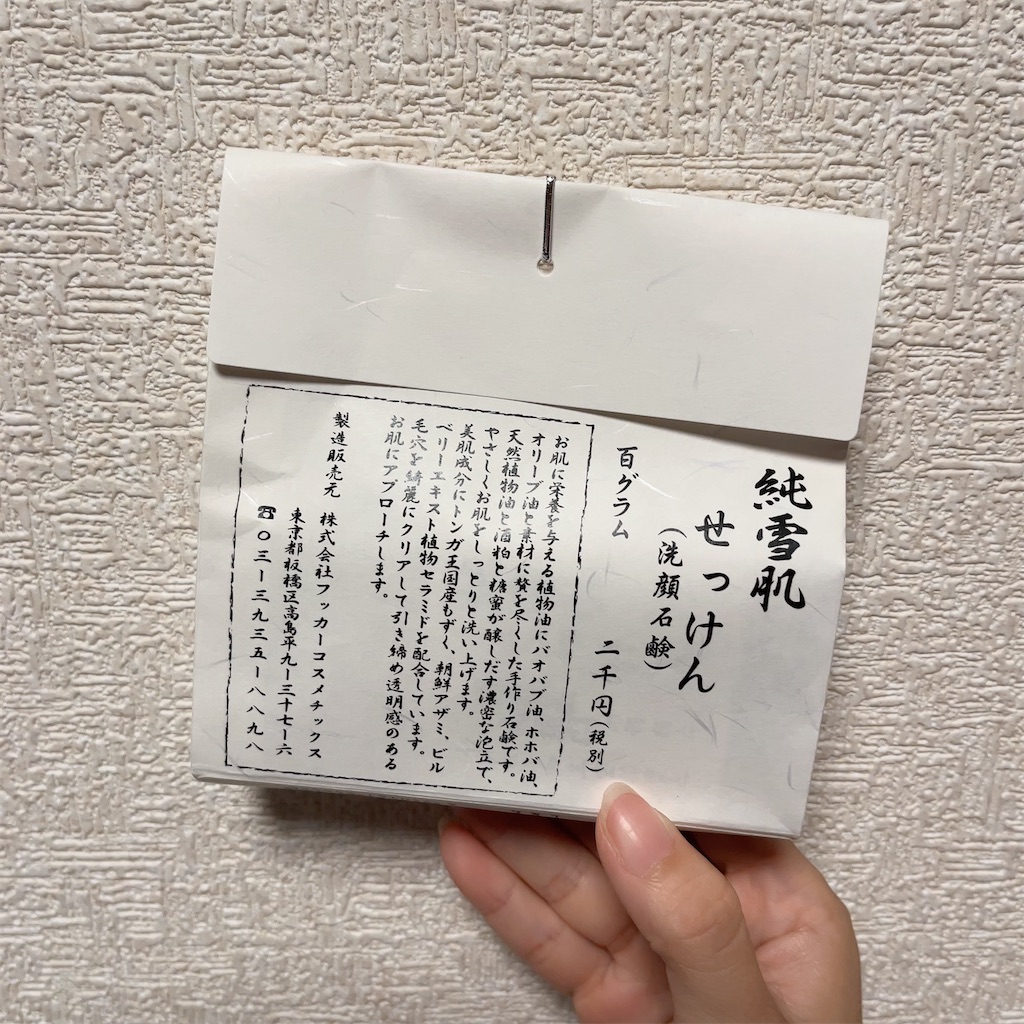 純雪肌
せっけん
(洗顔石鹸)
百グラム　二千円(税別)
お肌に栄養を与える植物油にバオバブ油、ホホバ油、
オリーブ油と素材に贅を尽くした手作り石鹸です。
天然植物油と酒粕と糖蜜が醸しだす濃密な泡立で、
やさしくお肌をしっとりと洗い上げます。
美肌成分にトンガ王国産もずく、朝鮮アザミ、ビル
ベリーエキスト植物セラミドを配合しています。
毛穴を綺麗にクリアして引き締め透明感のある
お肌にアプローチします。
製造販売元　株式会社フッカーコスメチックス
東京都板橋区高島平九ー三十七ー六
☎〇三ー三九三五ー八八九八